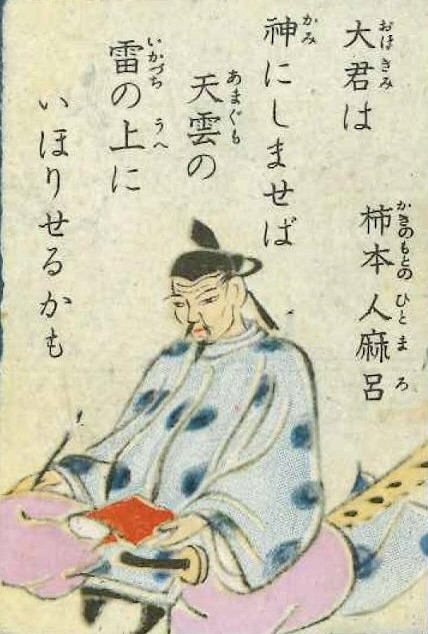 大君は
柿本人麻呂
神にしませば
天雲の
雷の上に
いほりせるかも
おほきみ
かきのもとのひとまろ
かみ
あまぐも
いかづち
うへ